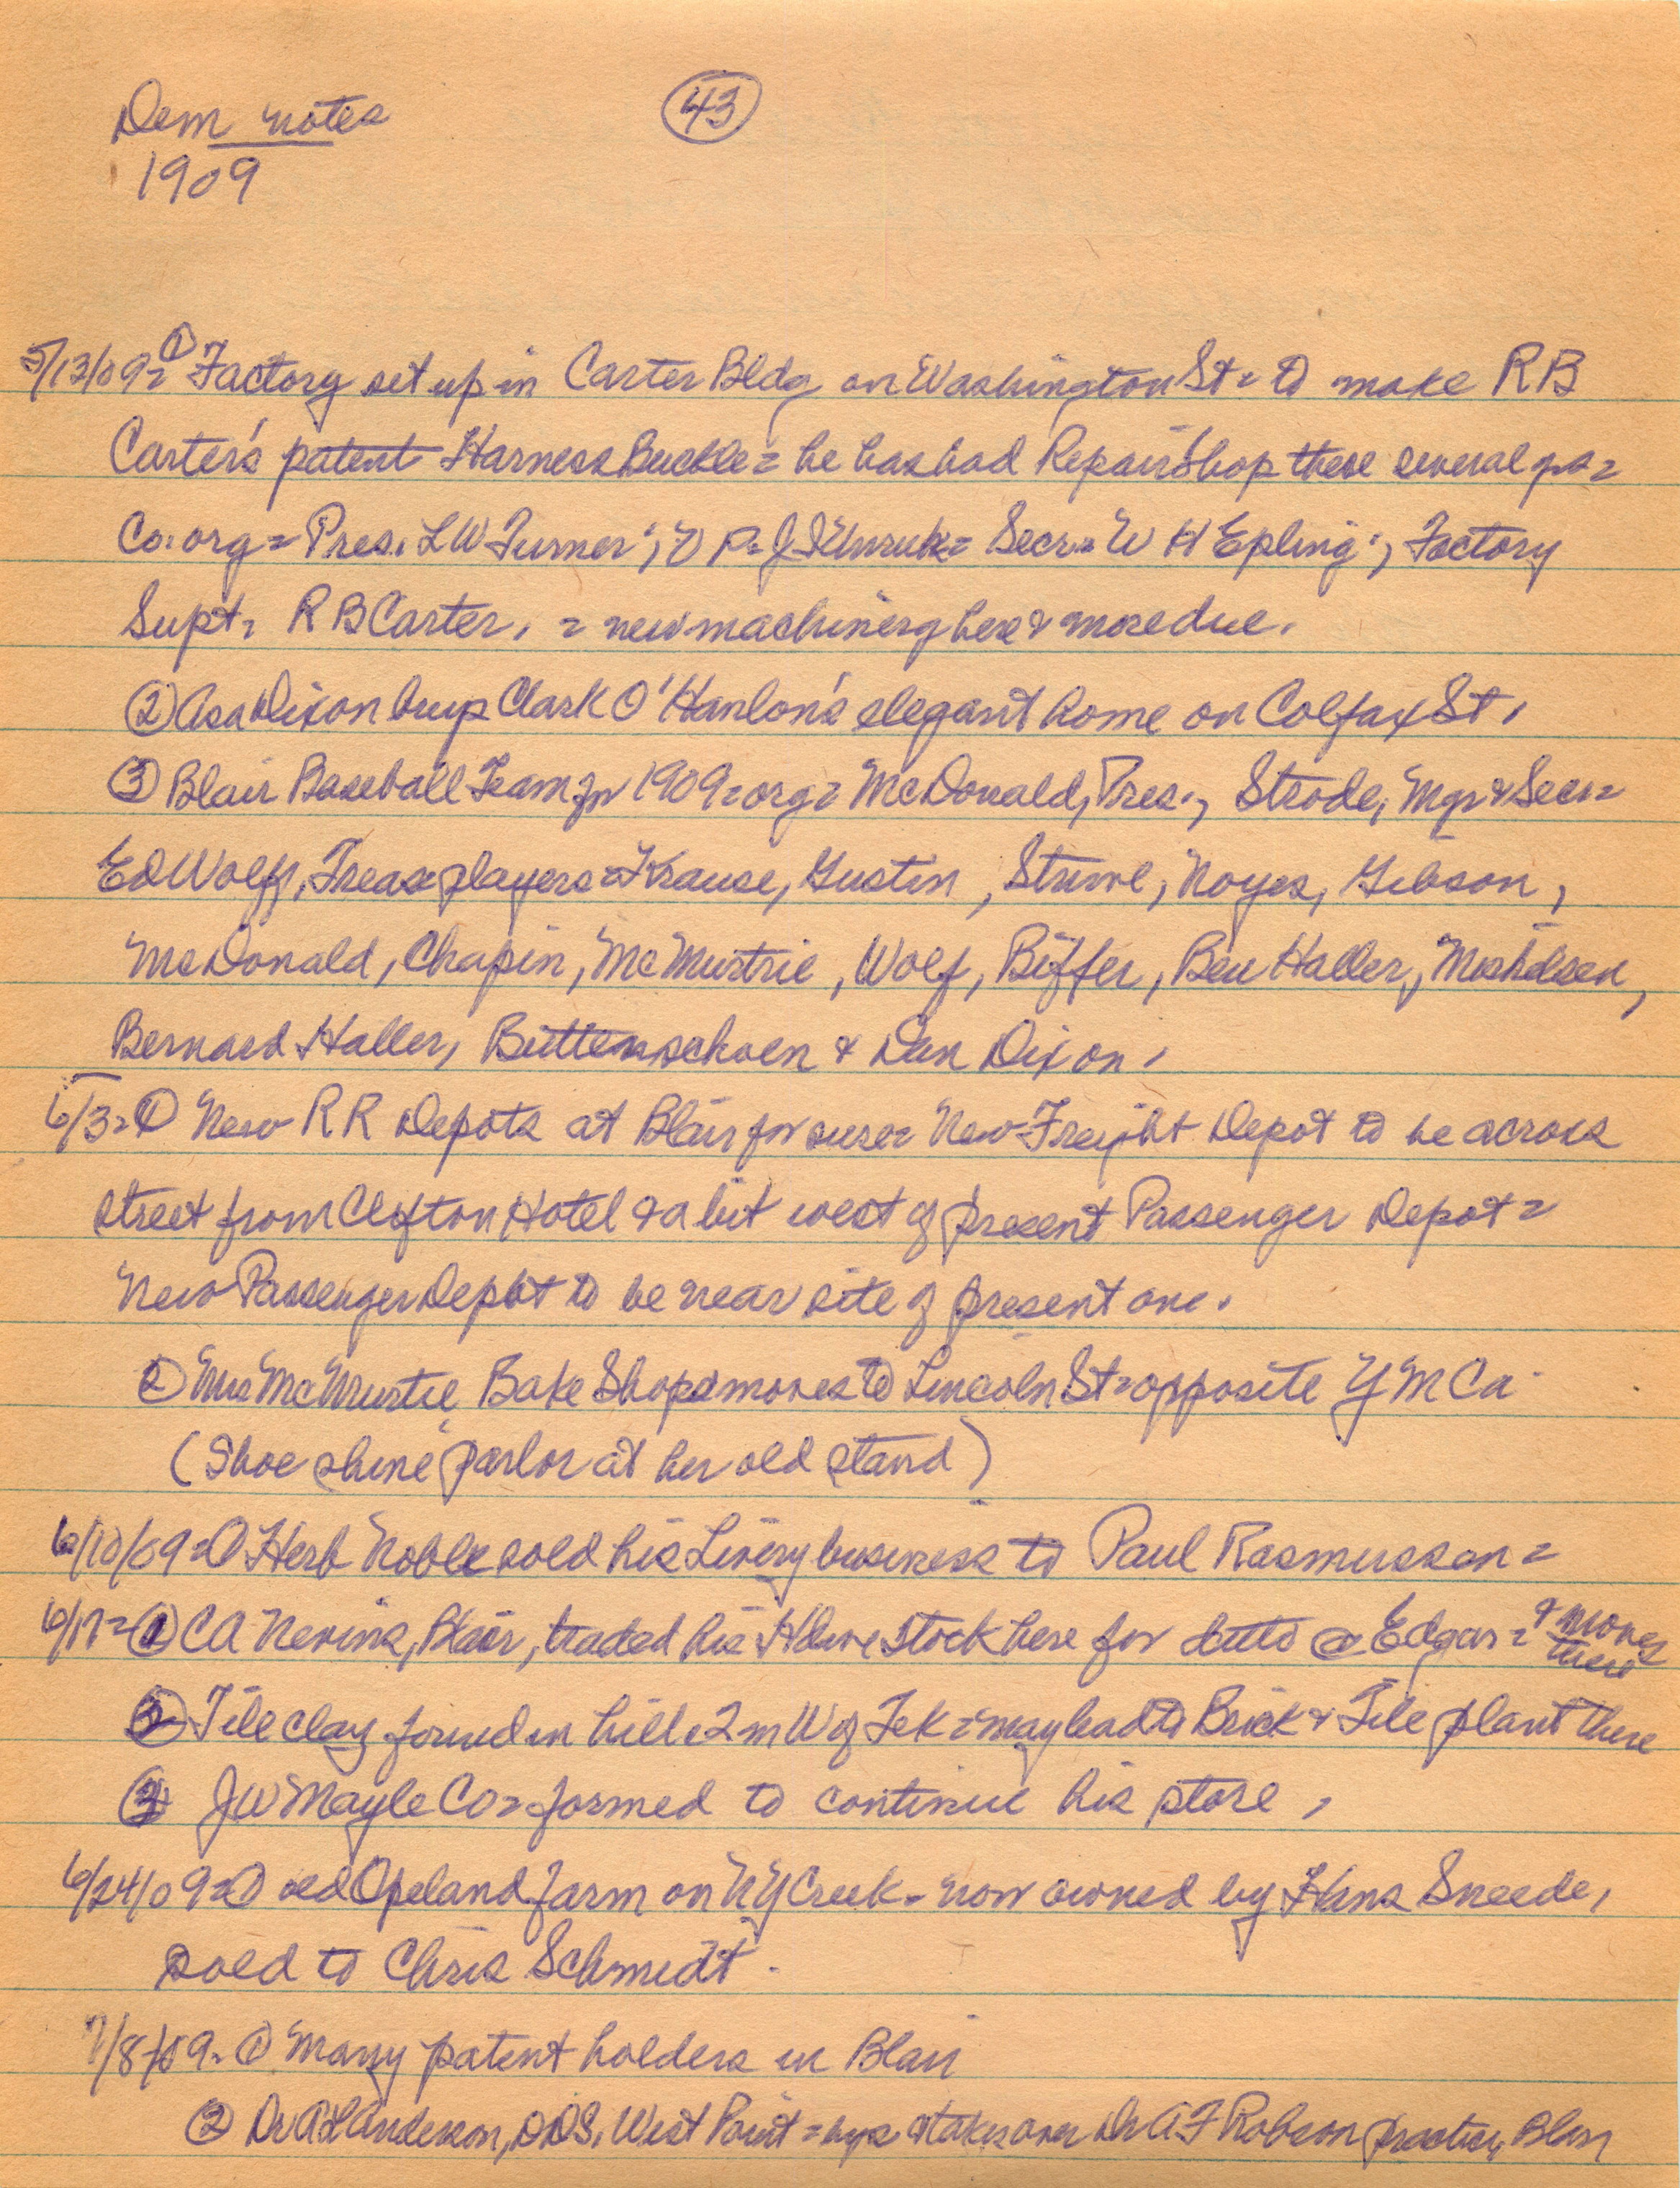 Dem notes
43
1909
5/13/09= ① Factory set up in Carter Bldg on Washington St = to make RB
Carter's patent Harness Buckle = he has had Repair Shop there several yrs =
Co. org = Pres. L W Turner; V P = J S Unruh = Secr = W H Epling; Factory
Supt = R B Carter. = new machinery here & more due.
② Asa Dixon buys Clark O'Hanlon's elegant home on Colfax St.
③ Blair Baseball Team for 1909 = org = McDonald, Pres., Strode, Mgr & Secr =
Ed Wolff, Treas = players = Krause, Gustin, Struve, Noyes, Gibson,
McDonald, Chapin, McMurtrie, Wolf, Biffer, Ben Haller, Michelsen,
Bernard Haller, Buttenschoen & Dan Dixon.
6/3= ① New RR Depots at Blair for sure = New Freight Depot to be across
street from Clifton Hotel & a bit west of present Passenger Depot =
New Passenger Depot to be near site of present one.
② Mrs McMurtie Bake Shop moves to Lincoln St = opposite YMCA
(Shoe shine parlor at her old stand)
6/10/09= ① Herb Noble sold his Livery business to Paul Rasmussen =
6/17= ① CA Nevins, Blair, traded his Hdwre stock here for ditto @ Edgar = & moves there
② Tile clay found in hill 2 m W of Tek = may lead to Brick & Tile plant there
③ JW Mayle Co = formed to continue his store.
6/24/09= ① old Opeland farm on NY Creek = now owned by Hans Sneede,
sold to Chris Schmidt.
7/8/09= ① Many patent holders in Blair
② Dr A L Anderson, DDS, West Point = buys & takes over Dr A F Robson practice, Blair